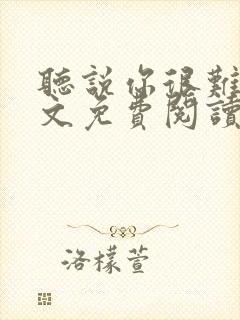 聽說你很難
文免費閱讀
洛檬萱